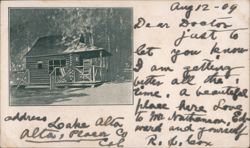 Aug 12-09
Dear Doctor
just to
let you know
I am getting
better all the
time, a beautiful
place here Love
to Mr Nathanson, Ed
ward and yourself
R. L. Cox
address Lake Alta
Alta, Placer Co
Cal